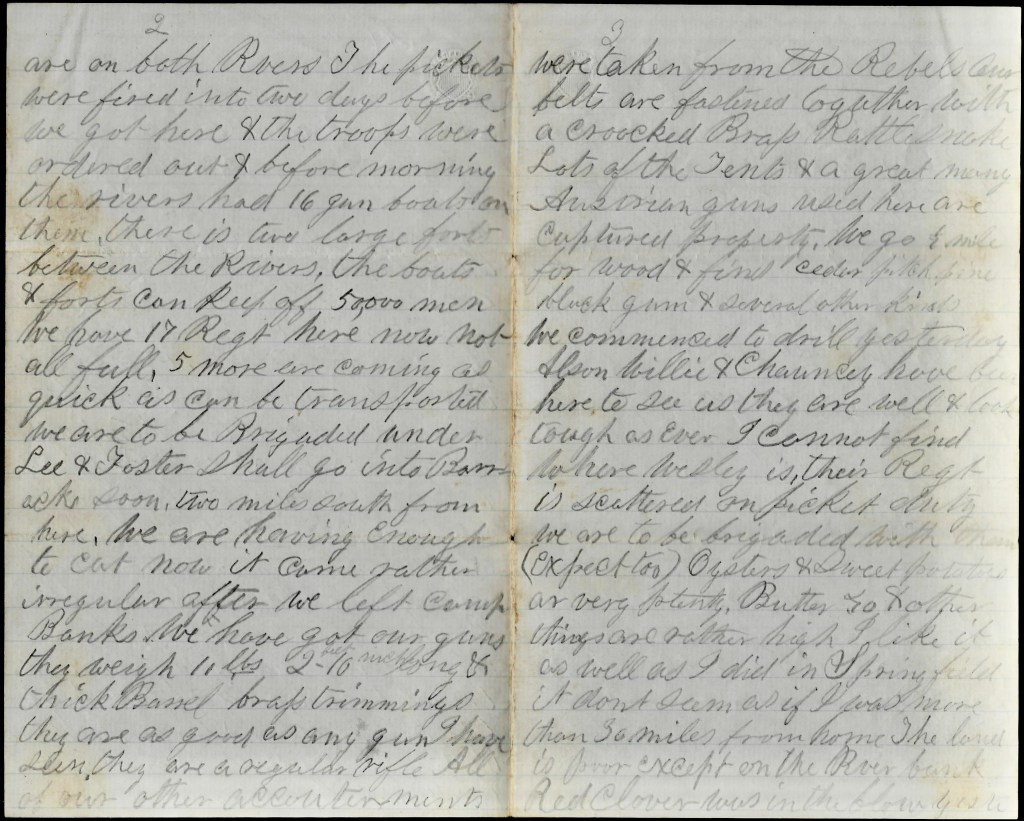 2
are on both Rvers The pickets
were fired into two days before
we got here & the troops were
ordered out & before morning
the rivers had 16 gun boats on
them, there is two large forts
between the Rivers, the boats
& forts can keep off 50,000 men
We have 17 Regt here now not
all full, 5 more are coming as
quick as can be transported
we are to be Brigaded under
Lee & Foster shall go into Barr-
acks soon, two miles south from
here, We are having Enough
to eat now it came rather
irregular after we left camp
Banks. We have got our guns
they weigh 11 lbs 2 feet 10 inch long &
thick Barrel brass trimmings
they are as good as any gun I have
seen, they are a regular rifle All
of our other accouterments
3
were taken from the Rebels our
belts are fastened together with
a croocked Brass Rattlesnake
Lots of the Tents & a great many
Austrian guns used here are
captured property, We go ½ mile
for wood & find cedar pitch pine
black gum & several other kinds
We commenced to drill yesterday
Alson Willie & Chauncey have been
here to see us they are well & look
tough as Ever I cannot find
where Wesley is, their Regt
is scattered on picket duty
we are to be brigaded with them
(expect too) Oysters & Sweet potatoes
ar very plenty, Butter 30, & other
things are rather high I like it
as well as I did in Springfield
it dont seem as if I was more
than 30 miles from home The land
is poor except on the River bank
Red Clover was in the blow yeste